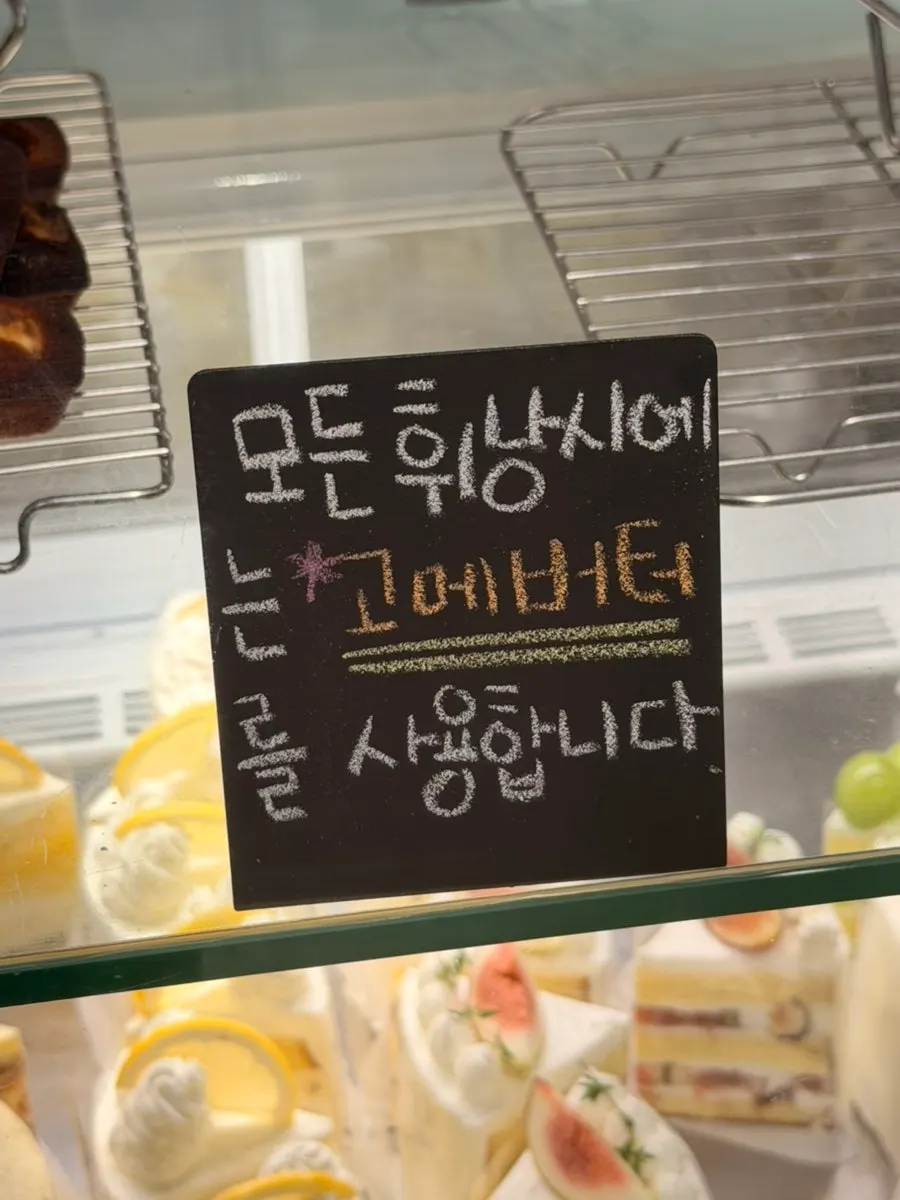 모든 휘낭시에
는 *고메버터
를 사용합니다